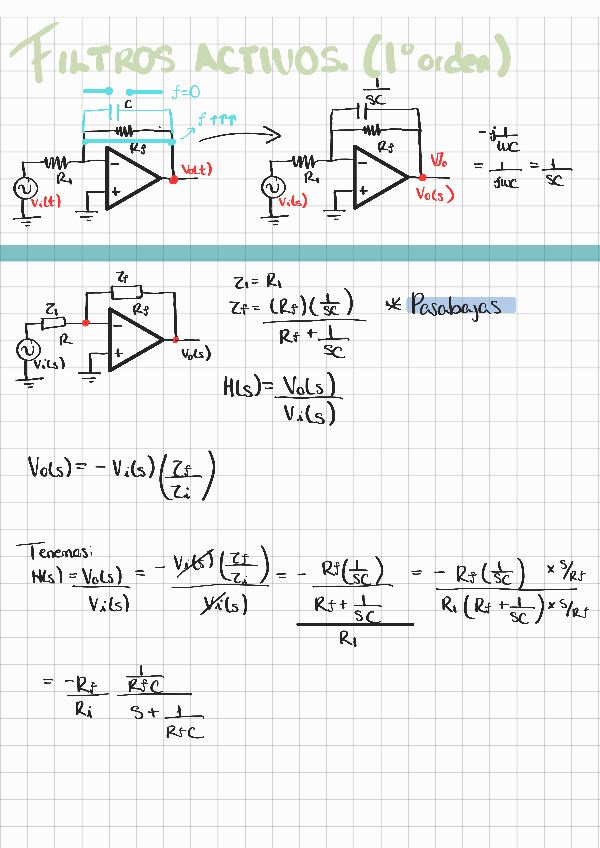 FILTROS ACTIVOS. (1° orden)
f=0
C
f ↑↑↑
Rf
R1
Vi(t)
Vo(t)
- +
1/SC
Rf
R1
Vi(s)
Vo
Vo(s)
- +
-j 1/WC
= 1/JWC = 1/SC
Zf
Z1
Rf
R
Vi(s)
Vo(s)
- +
Z1 = R1
Zf = (Rf)(1/SC) / Rf + 1/SC
* Pasabajas
H(s) = Vo(s) / Vi(s)
Vo(s) = - Vi(s) (Zf/Zi)
Tenemos:
H(s) = Vo(s)/Vi(s) = - Vi(s)(Zf/Zi) / Vi(s) = - Rf(1/SC) / Rf + 1/SC / R1 = - Rf(1/SC) × S/Rf / R1(Rf + 1/SC) × S/Rf
= -Rf/Ri 1/RfC / S + 1/RfC